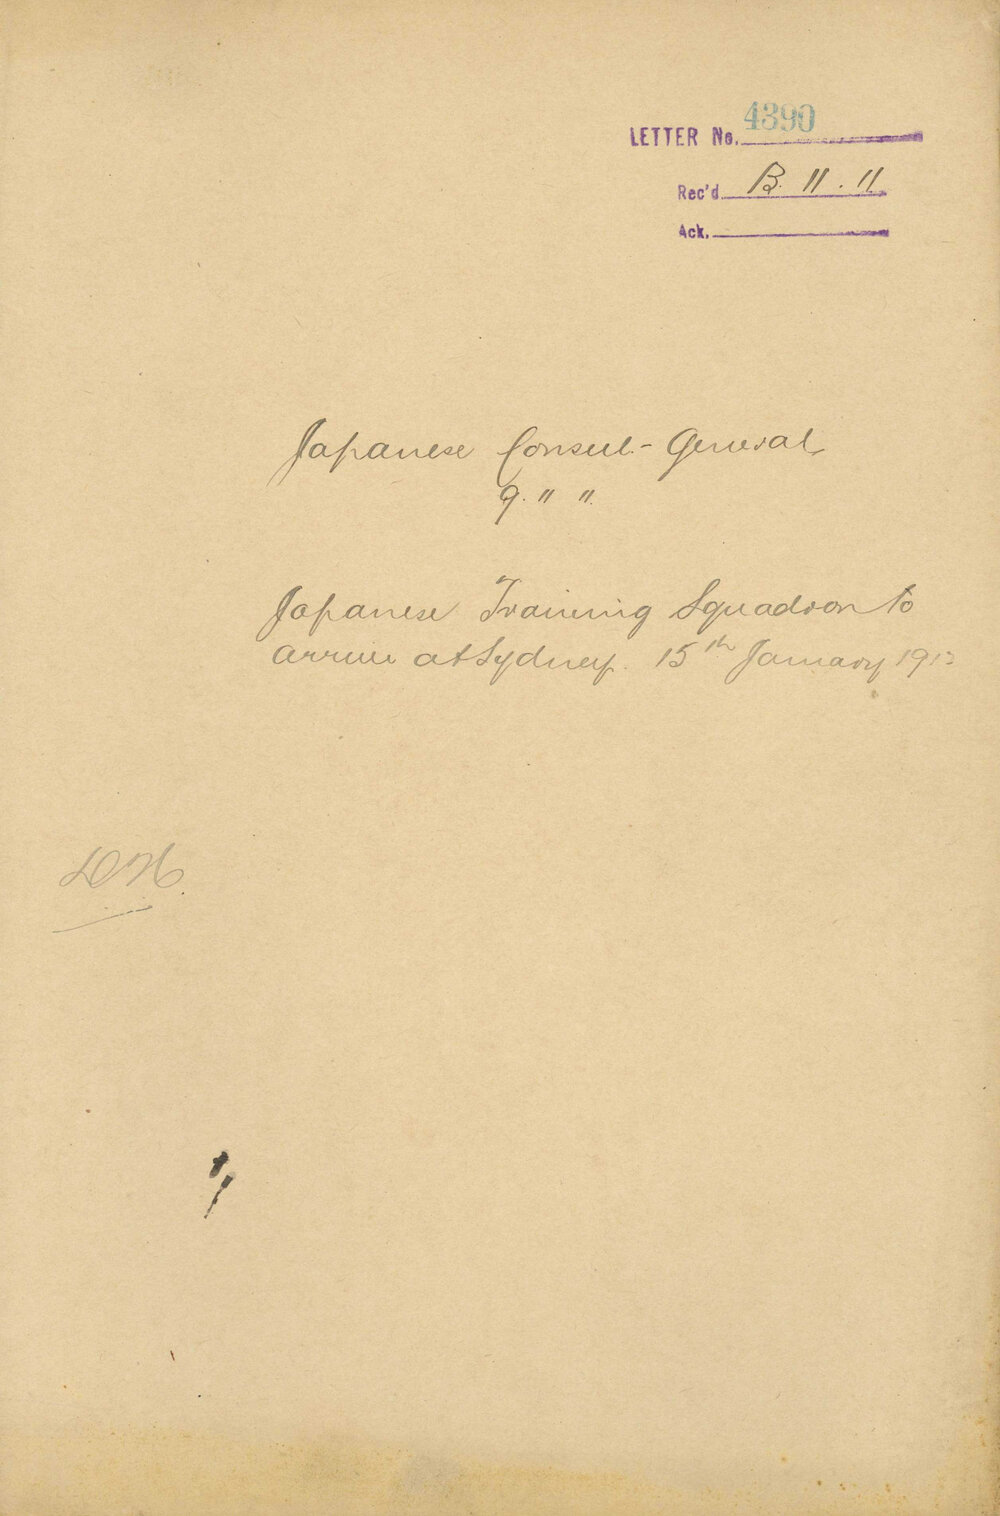 LETTER No. 4390
Rec'd 13. 11. 11
Ack.
Japanese Consul-General
9. " "
Japanese Training Squadron to
arrive at Sydney. 15th January 1912